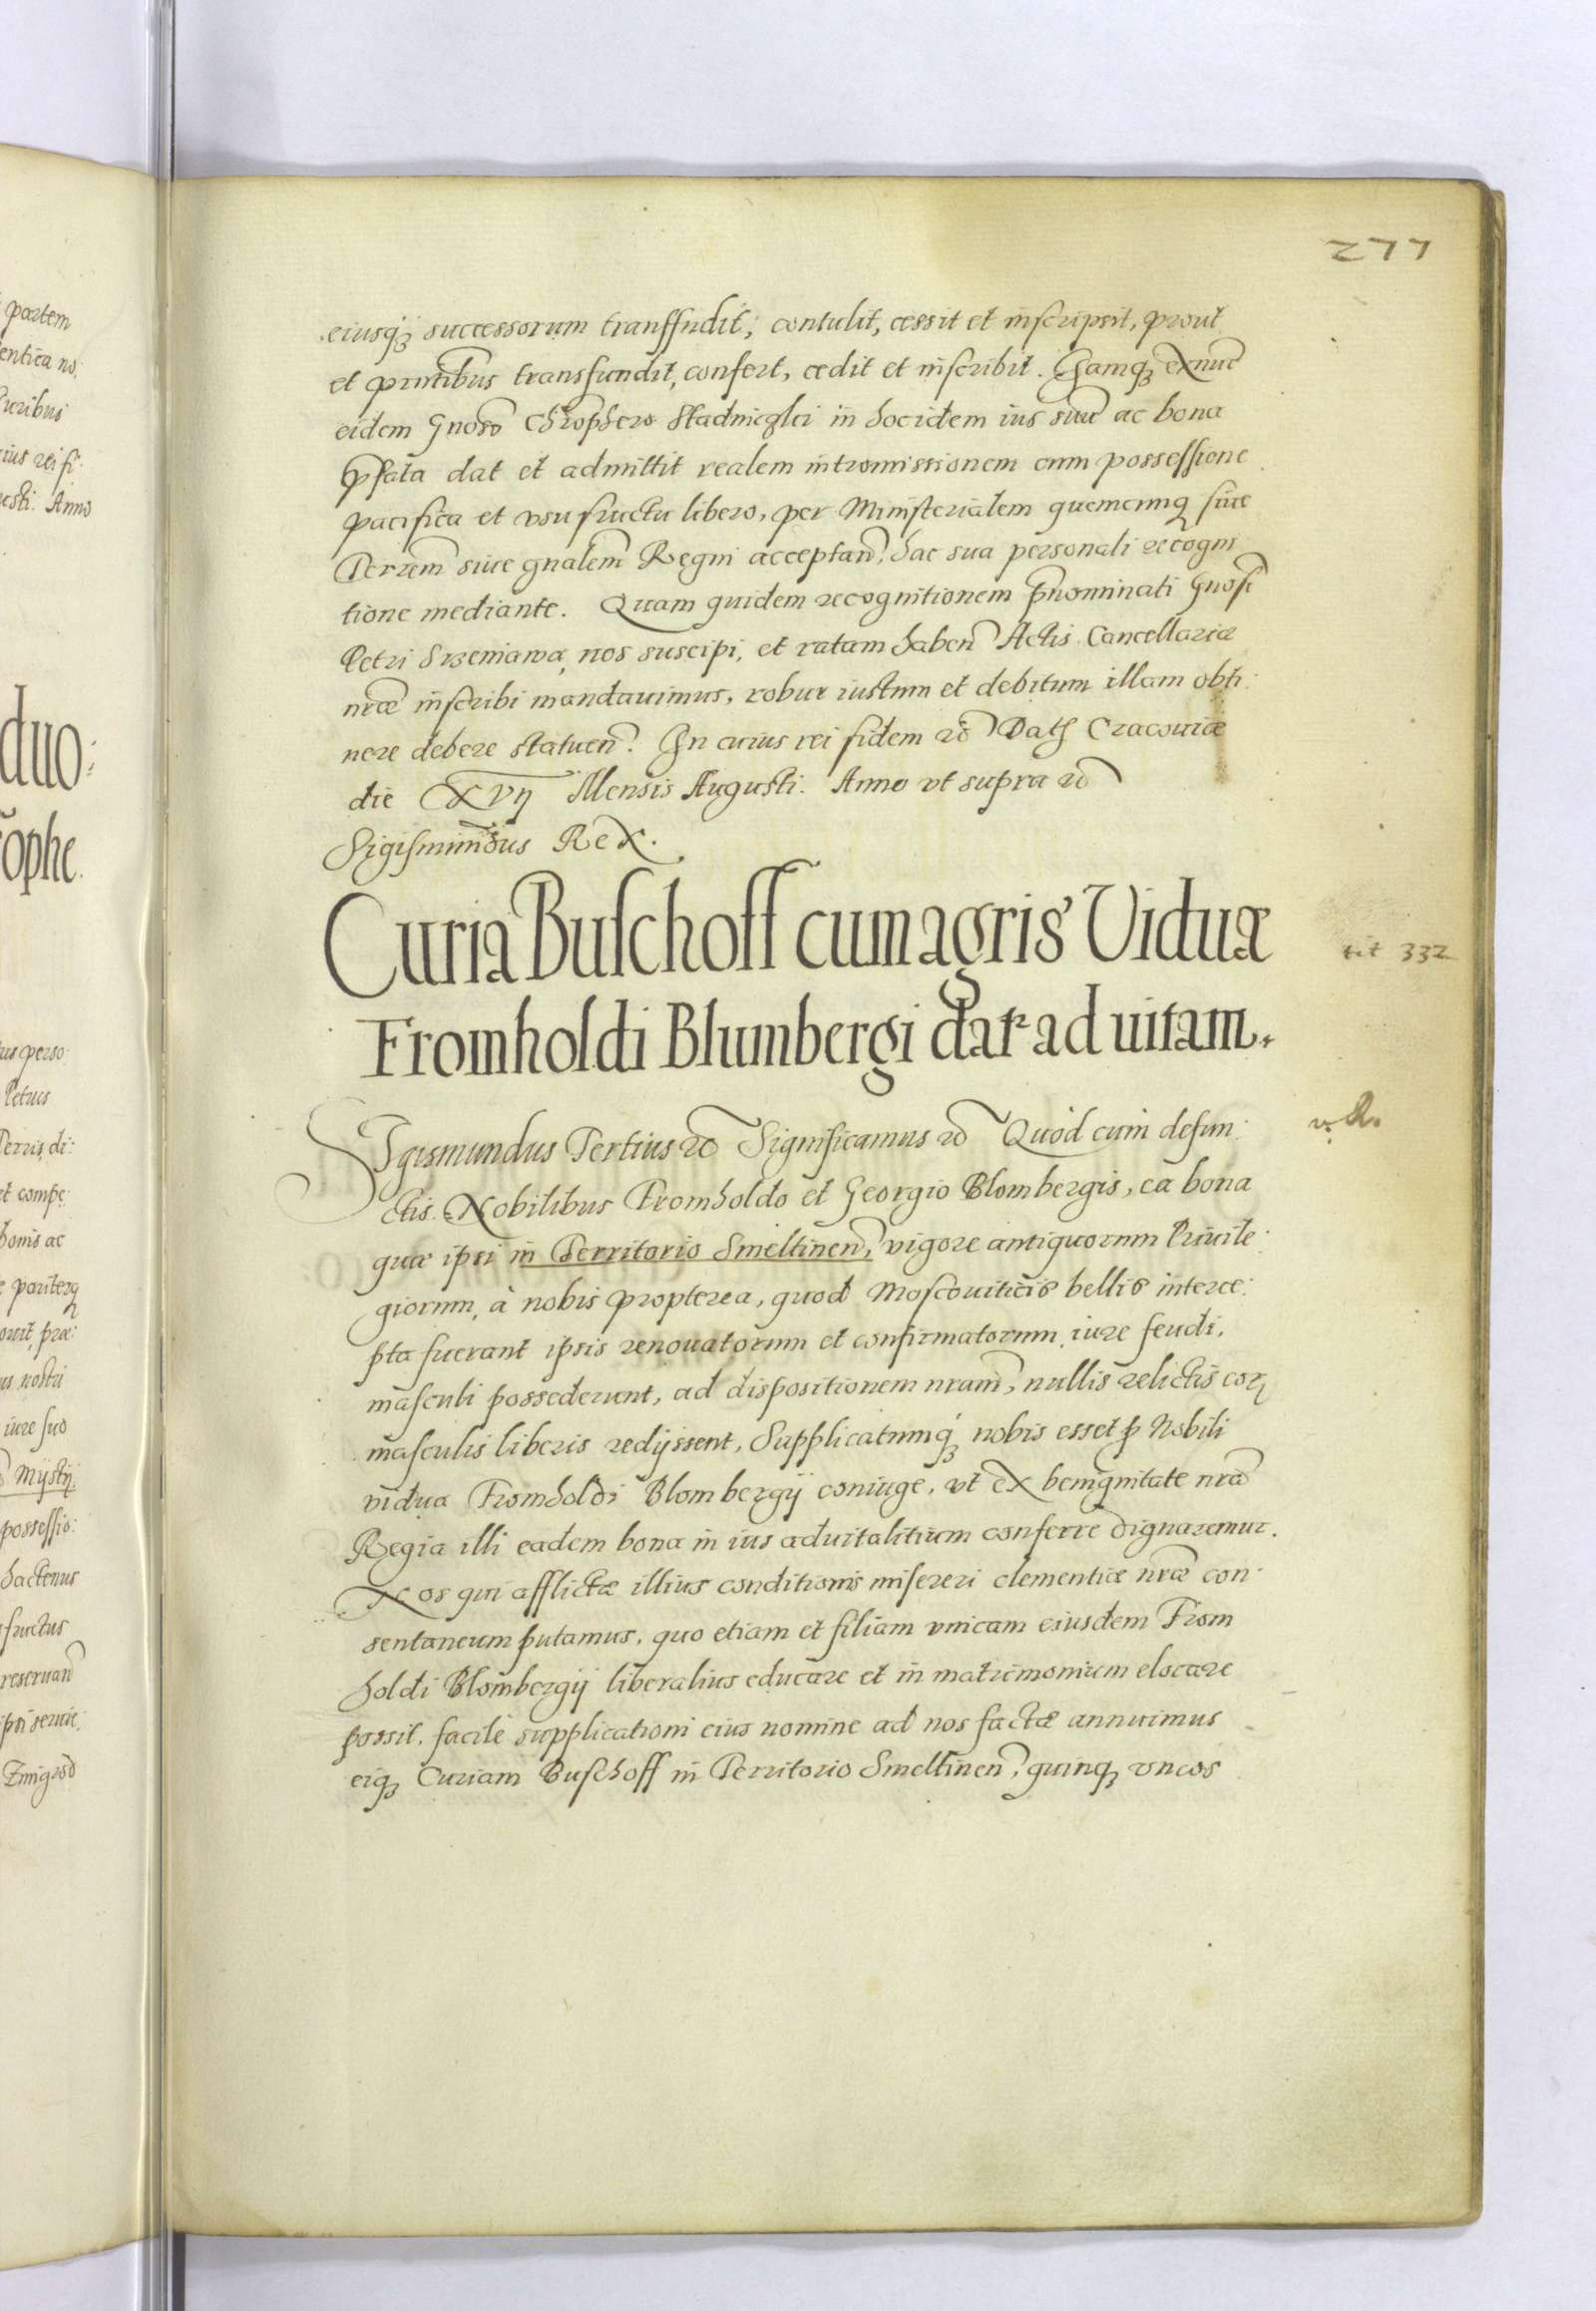 277
eiusq́ꝫ successorum transfudit, contulit, cessit et inscripsit, prout
et pr̃ntibus transfundit, confert, cedit et inscribit. Iamqꝫ exnuc̃
eidem Gnoso Chrõphero Stadniczki in hocidem ius suũ ac bona
p̃fata dat et admittit realem intromissionem cum possessione
pacifica et vsufructu libero, per Ministerialem quemcunqꝫ siue
Terrem̃ siue gnalem̃ Regni acceptan̄, hac sua personali recogni
tione mediante. Quam quidem recognitionem p̃nominati Gnosi
Petri Srzeniawa, nos suscipi, et ratam haben̄ Actis Cancellariæ
nræ̃ inscribi mandauimus, robur iustum et debitum illam obti:
nere debere statuen̄. In cuius rei fidem ꝛc̃ Datꝭ Cracouiæ
die XVII Mensis Augusti. Anno vt supra ꝛc̃
Sigismundus Rex.
Curia Buschoff cum agris Viduæ
Fromholdi Blumbergi datr ad uitam.
tit 332
Sigismundus Tertius ꝛc̃ Significamus ꝛc̃ Quod cum defun:
v. R.
ctis Nobilibus Fromholdo et Georgio Blombergis, ea bona
quæ ipsi in Territorio Smeltinen̄, vigore antiquorum Priuile:
giorum, à nobis propterea, quod Moscouiticis bellis interce:
pta fuerant ipsis renouatorum et confirmatorum, iure feudi,
masculi possederunt, ad dispositionem nram̃, nullis relictis corꝝ
masculis liberis redijssent, Supplicatumq́ꝫ nobis esset ꝑ Nobili
vidua Fromholdi Blombergij coniuge, vt ex benignitate nrã
Regia illi eadem bona in ius aduitalitium conferre dignaremur.
Nos qui afflictæ illius conditionis misereri clementiæ nræ̃ con:
sentaneum putamus, quo etiam et filiam vnicam eiusdem From
holdi Blombergij liberalius educare et in matrimonium elocare
possit, facilè supplicationi eius nomine ad nos factæ annuimus
eiqꝫ Curiam Buschoff in Territorio Smeltinen̄, quinqꝫ vncos
partem
entica no:
uribus
ius rei fi:
esti. Anno
duo:
ophe.
us perso:
Petrus
Terris, di:
et compe:
bonis ac
pariterq
ouit, præ:
us nostri
iure suo
Mijstij
possessio:
hactenus
fructus
reseruan̄
ipsi seruie:
Zmigrod